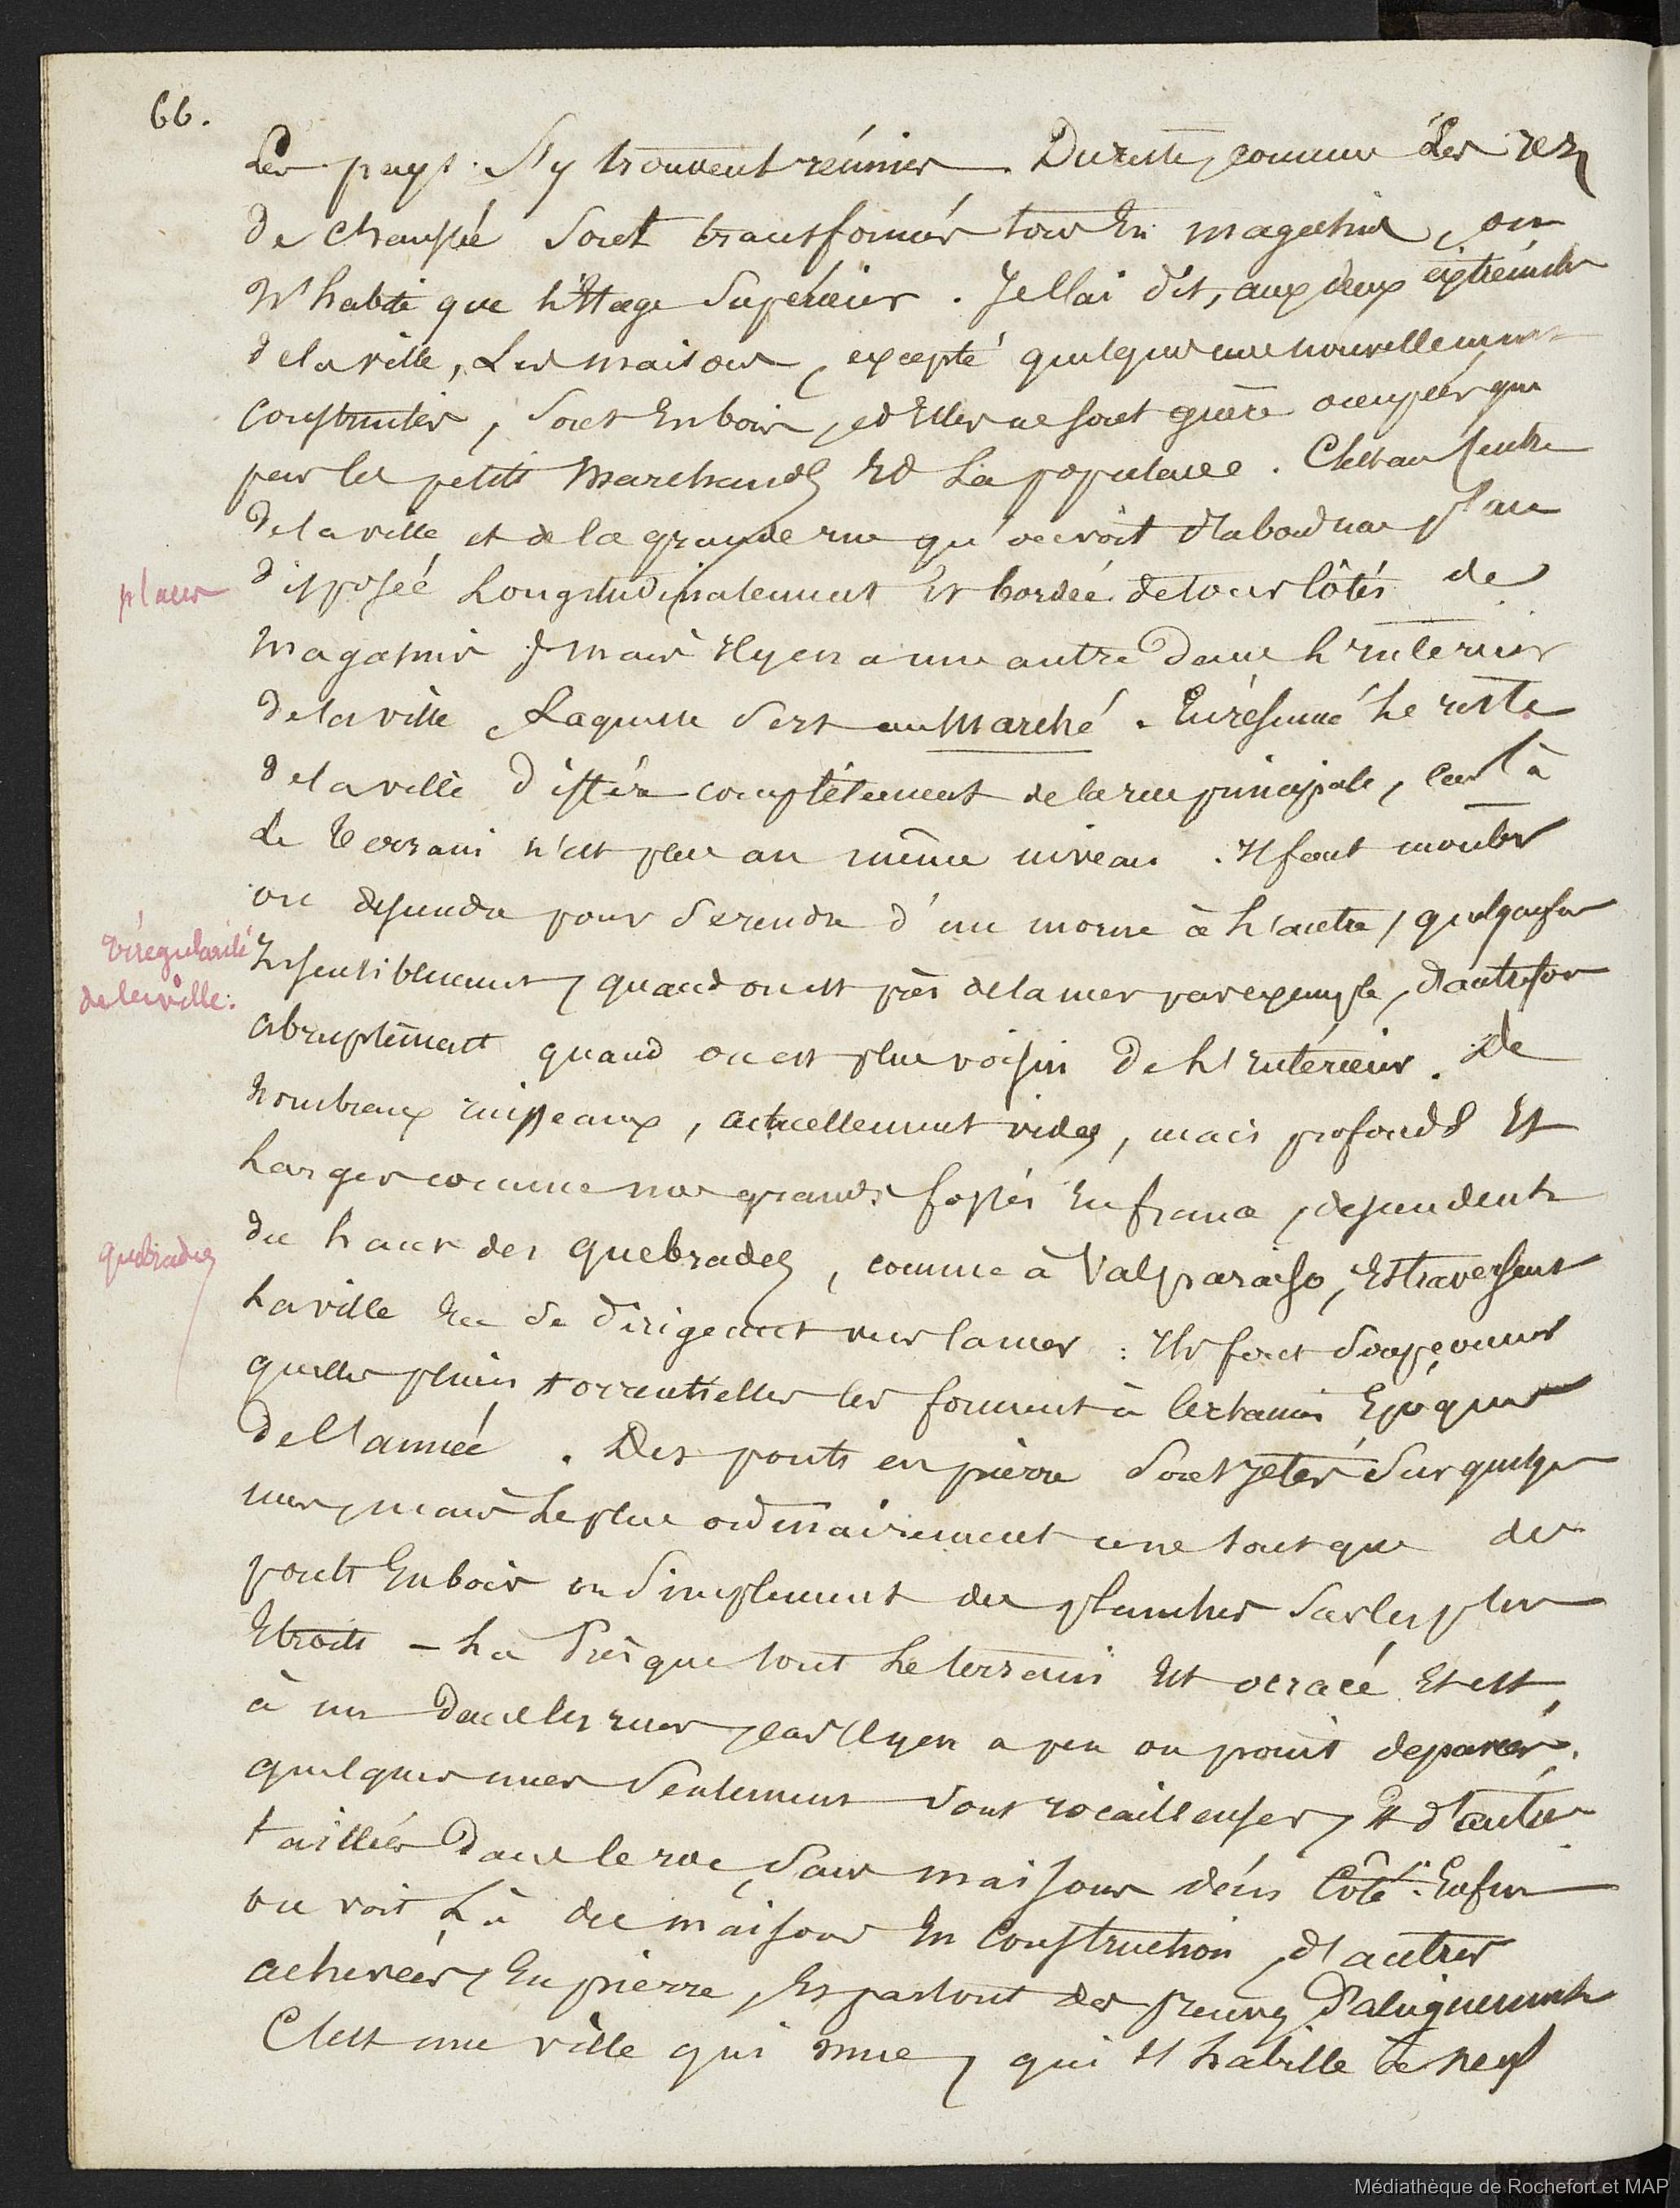 66.
Les pays s'y trouvent réunies. Du reste, comme les rez
de chaussée sont transformés tous en magasins, on
n'habite que l'étage supérieur. Je l'ai dit, aux deux extrémités
de la ville, les maisons, excepté quelques une nouvellement
construites, sont en bois, et elles ne sont guère occupées que
par les petits marchands et la populace. C'est au centre
de la ville et de la grande rue qu'on voit d'abord une place
places
disposée longitudinalement et bordée de tous côtés de
magasins ; mais il y en a une autre dans l'intérieur
de la ville, laquelle sert au marché. En résumé le reste
de la ville diffère complétement de la rue principale, car là
le terrain n'est plus au même niveau. Il faut monter
ou descendre pour se rendre d'un morne à l'autre, quelquefois
irrégularité
de la ville.
insensiblement, quand on est près de la mer par exemple, d'autrefois
abruptement quand on est plus voisin de l'intérieur. De
nombreux ruisseaux, actuellement vides, mais profonds et
larges comme nos grands fossés en france, descendent
quebrades
du haut des quebrades, comme à Valparaiso, et traversent
la ville en se dirigeant vers la mer : Ils font soupçonner
quelles pluies torrentielles les forment à certaines époques
de l'année. Des ponts en pierre sont jetés sur quelques
uns, mais le plus ordinairement ce ne sont que des
ponts en bois ou simplement des planches sur les plus
étroits - Là presque tout le terrain est ocracé et est
à nu dans les rues, car il y en a peu ou point de pavées.
quelques unes seulement sont rocailleuses, et d'autres
taillées dans le roc, sans maisons d'un côté. Enfin
on voit là des maisons en construction, d'autres
achevées, en pierre, et partout des preuves d'alignement
C'est une ville qui mue, qui s'habille à neuf
Médiathèque de Rochefort et MAP